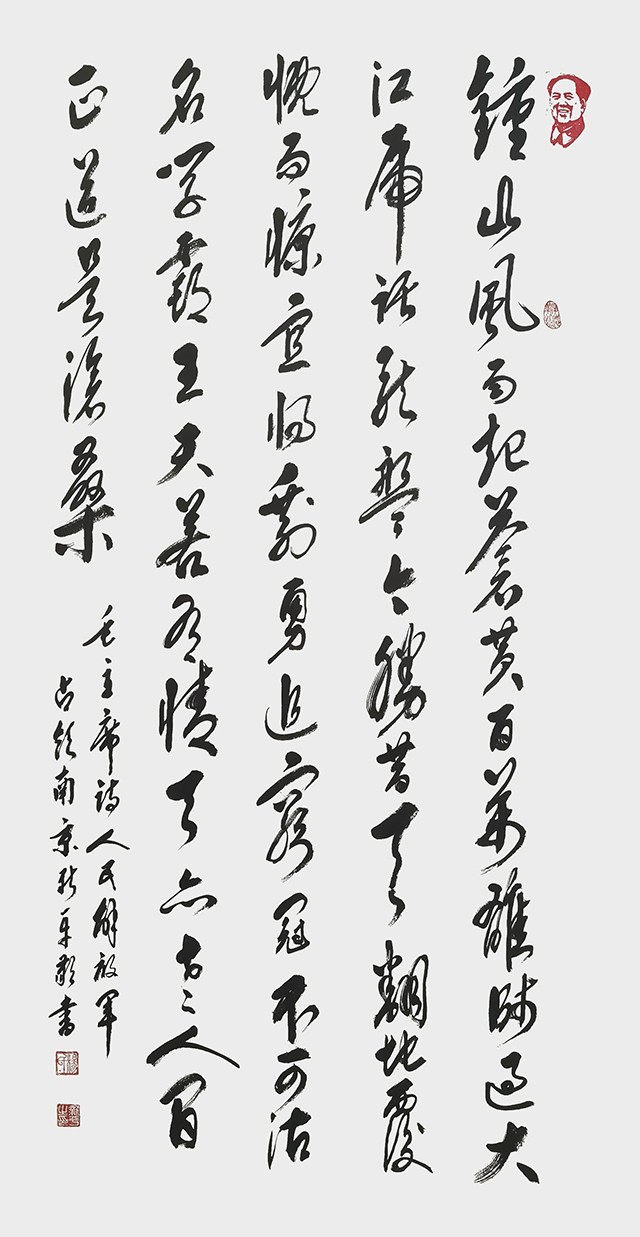 鍾山風雨起蒼黃百萬雄師過大
江虎踞龍盤今勝昔天翻地覆
慨而慷宜將剩勇追窮寇不可沽
名學霸王天若有情天亦老人間
正道是滄桑
毛主席詩人民解放軍
占領南京 書